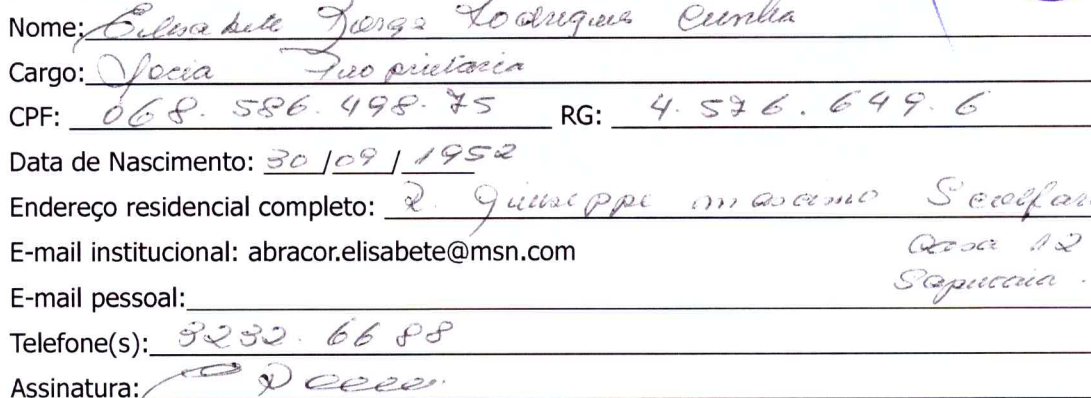 Nome: Elisabete Borga Rodrigues Cunha
Cargo: Socia Proprietaria
CPF: 068.586.498.75 RG: 4.576.649.6
Data de Nascimento: 30/09/1952
Endereço residencial completo: R. Giuseppe maximo
E-mail institucional: abracor.elisabete@msn.com Casa 12
E-mail pessoal: Sapucaia.
Telefone(s): 3232.6688
Assinatura: